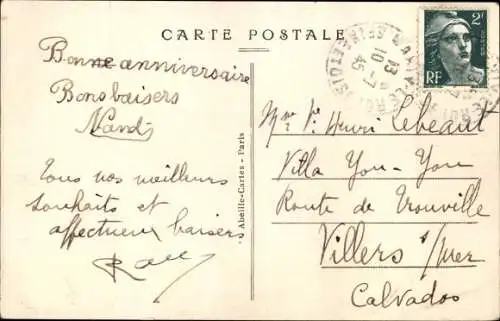 CARTE POSTALE
Bonne anniversaire
Bons baisers
Tous nos meilleurs
souhaits et
affectueux baisers
Abeille-Cartes - Paris
2F
RF
13 H
10 - 7
45
Mme Vve Henri Lebeaut
Villa You-You
Route de Trouville
Villers s/Mer
Calvados